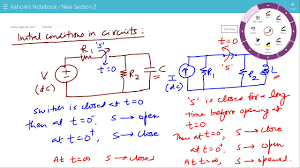 kishore's Notebook - New Section 2
Initial conditions in circuits :
R₁ 's'
t=0
V
(dc)
R₂
C
's'
t=0
I
(dc)
R₁
R₂
L
Switch is closed at t=0
then at t=0⁻, S → open
at t=0⁺, S → close
At t=∞ S → close
's' is closed for a long
time before opening at
t=0
Then at t=0⁻, S → close
at t=0⁺, S → open
At t=∞, S → opened.